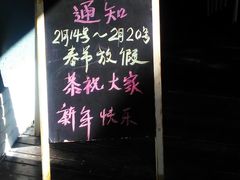 通知
2月14号～2月20号
春节放假
恭祝大家
新年快乐